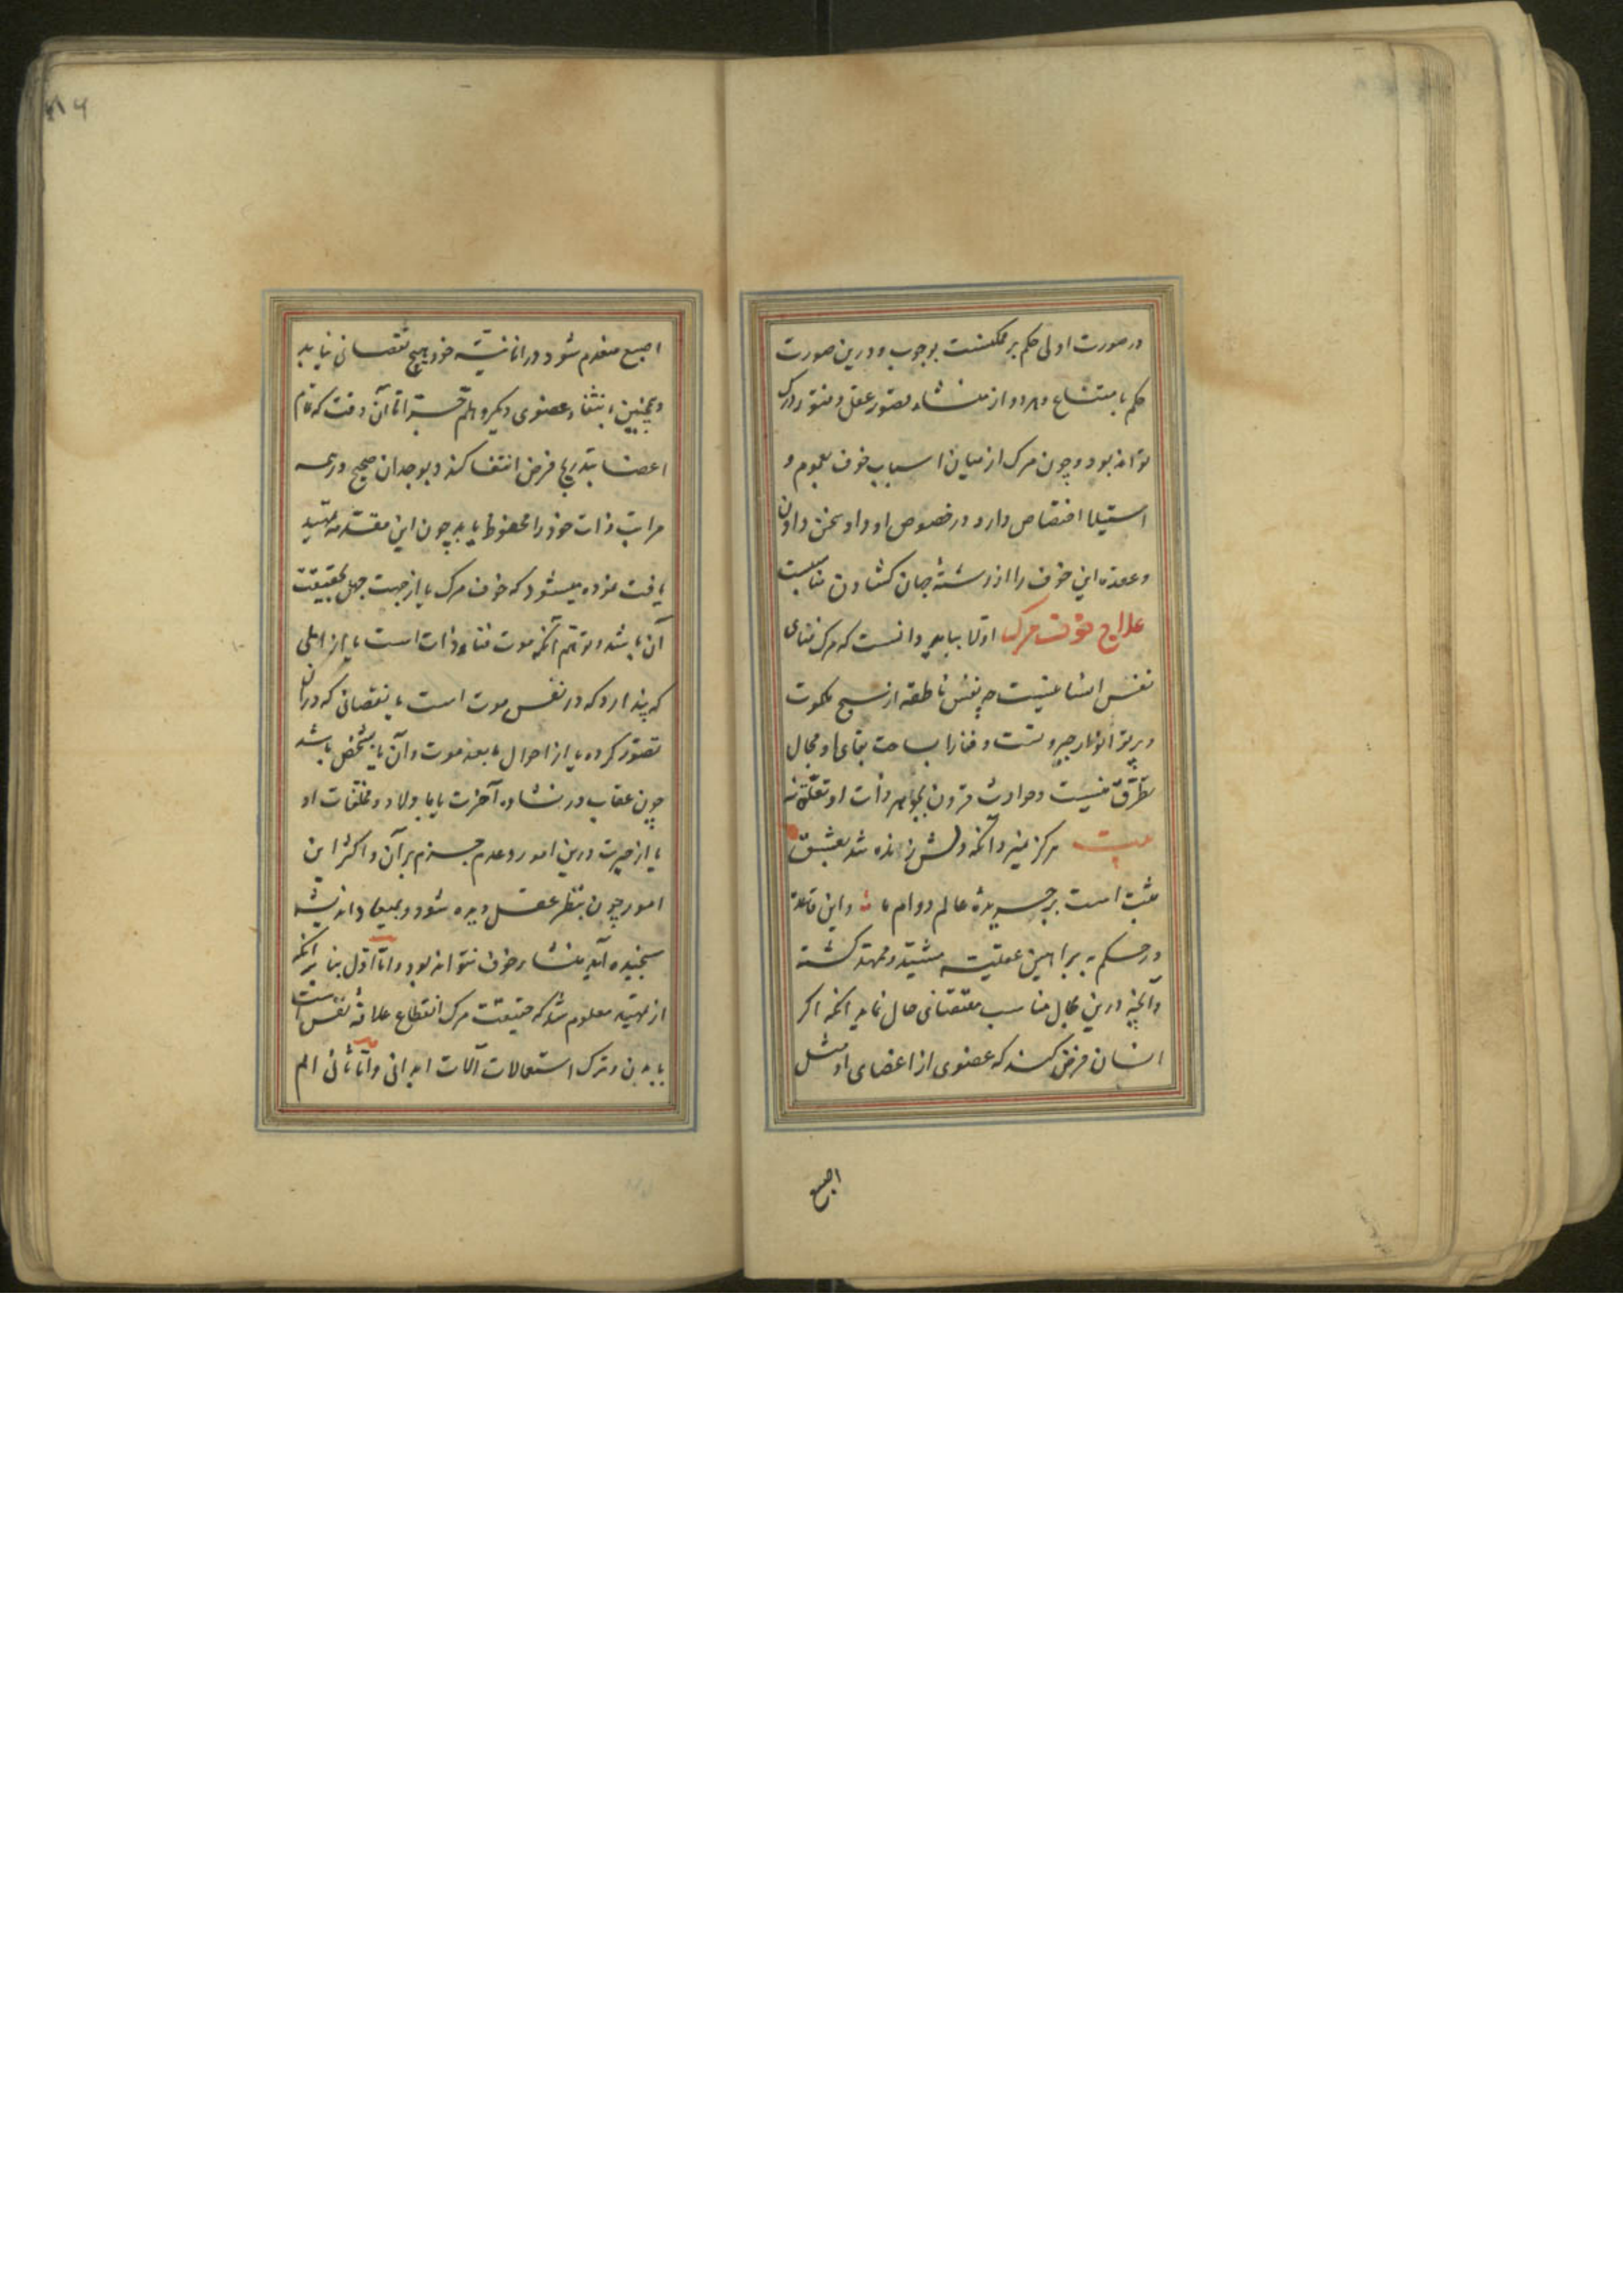 در صورت اولی حکم بر ممکنست بوجوب و درین صورت
حکم بامتناع و هر دو از منشاء قصور عقل و فتور درک
تواند بود و چون مرک از میان اسباب خوف بعموم و
استیلا اختصاص دارد در خصوص او داد سخن دادن
و عقده این خوف را از رشتهٔ جان کشادن مناسبست
علاج خوف مرک اولا بباید دانست که مرک فنای
نفس انسانی نیست چه نفس ناطقه از سنح ملکوت
و پرتو انوار جبروتست و فنا را بساحت بقای او مجال
تطرق نیست و حوادث قرون بجواهر ذات او تعلق نه
بیت هرکز نمیرد آنکه دلش زنده شد بعشق
ثبت است بر جریدهٔ عالم دوام ما و این قاعده
در حکمت ببراهین عقلیه مشید و ممهد کشته
و آنچه درین محل مناسب مقتضای حال نماید آنکه اکر
انسان فرض کند که عضوی از اعضای او مثل
اصبع
۸۱۶
اصبع منعدم شود در انانیت خود هیچ نقصانی نیابد
و همچنین بانتفاء عضوی دیکر و هلم جرا تا آن وقت که تمام
اعضا بتدریج فرض انتفا کند و بوجدان صحیح در همه
مراتب ذات خود را محفوظ یابد چون این مقدمه تمهید
یافت نموده میشود که خوف مرک یا از جهت جهل بحقیقت
آن باشد و توهم آنکه موت فناء ذات است یا از المی
که پندارد که در نفس موت است یا نقصانی که در آن
تصور کرده یا از احوال ما بعد موت و آن یا بشخص باشد
چون عقاب در نشاء آخرت یا باولاد و مخلفات او
یا از حیرت درین امور و عدم جزم بر آن و اکثر این
امور چون بنظر عقل دیده شود و بمیعاد اندیشه
سنجیده آید منشاء خوف نتواند بود و اما اول بنا بر آنکه
از تمهید معلوم شد که حقیقت مرک انقطاع علاقهٔ نفس است
با بدن و ترک استعمالات آلات ابدانی و اما ثانی الم